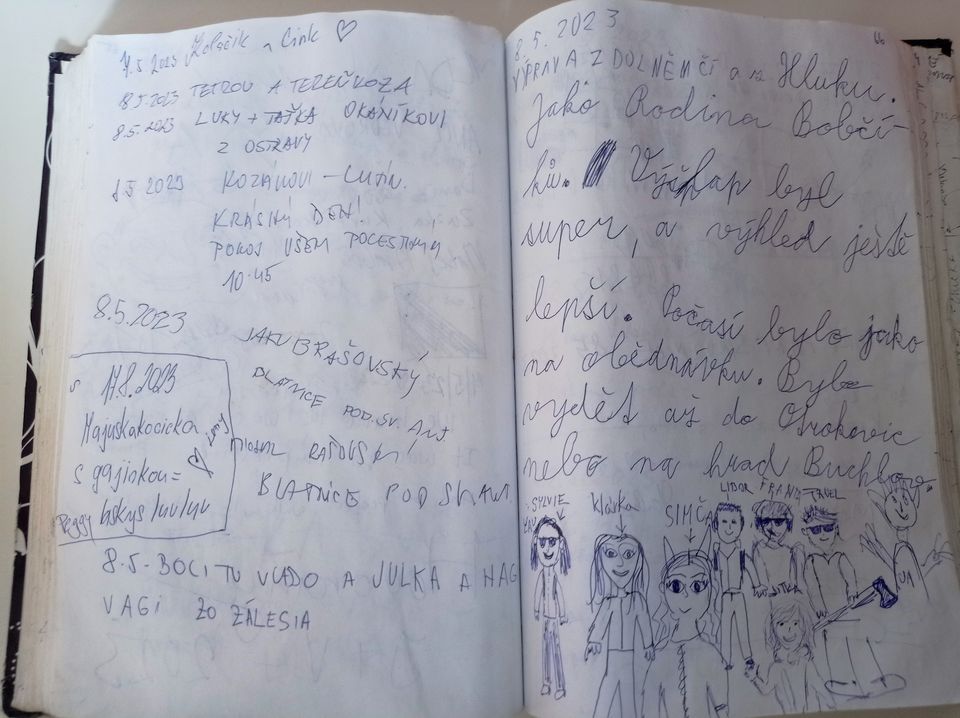 7.5 2023 Koláčik a Cink
8.5.2023 TETROU A TEREŇKOZA
8.5.2023 LUKY + TAŠKA OKÁNÍKOVI
Z OSTRAVY
8.5 2023 KOZÁKOVI - LUTÍN.
KRÁSNÝ DEN!
POKOJ VŠEM POCESTNÝM
10.45
8.5.2023
JAKUB RAŠOVSKÝ
BLATNICE POD.SV. ANT
s 17.8.2023
Majuskakocicka
s gajinkou=
Peggy luvluv
MICHAL RAŠOVSKÝ
BLATNICE POD SV.ANT
8.5.- BOLI TU VLADO A JULKA A NAG
VAGI ZO ZÁLESIA
8.5.2023
VÝPRAVA Z DOLNĚMČÍ a z Hluku.
Jako Rodina Bobčí-
ků. Výšlap byl
super, a výhled ještě
lepší. Počasí bylo jako
na obědnávku. Bylo
vydět až do Otrokovic
nebo na hrad Buchlov.
SYLVIE
Klárka
SIMČA
LIBOR
PAVEL